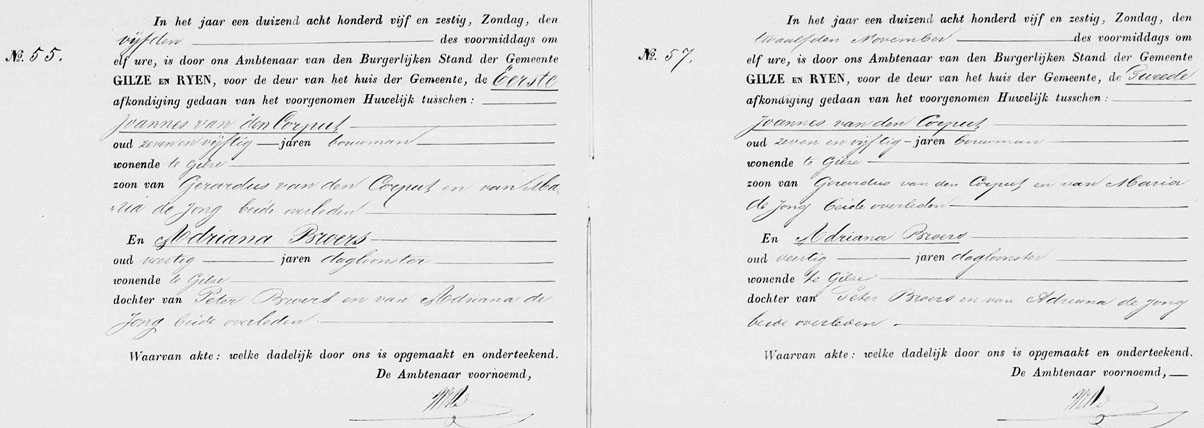 In het jaar een duizend acht honderd vijf en zestig, Zondag, den
vijfden des voormiddags om
No. 55.
elf ure, is door ons Ambtenaar van den Burgerlijken Stand der Gemeente
GILZE EN RYEN, voor de deur van het huis der Gemeente, de Eerste
afkondiging gedaan van het voorgenomen Huwelijk tusschen:
Joannes van den Corput
oud zeven en vijftig jaren bouwman
wonende te Gilze
zoon van Gerardus van den Corput en van Ma-
ria de Jong beide overleden
En Adriana Broers
oud veertig jaren dagloonster
wonende te Gilze
dochter van Peter Broers en van Adriana de
Jong beide overleden
Waarvan akte: welke dadelijk door ons is opgemaakt en onderteekend.
De Ambtenaar voornoemd,
In het jaar een duizend acht honderd vijf en zestig, Zondag, den
twaalfden November des voormiddags om
No. 57.
elf ure, is door ons Ambtenaar van den Burgerlijken Stand der Gemeente
GILZE EN RYEN, voor de deur van het huis der Gemeente, de Tweede
afkondiging gedaan van het voorgenomen Huwelijk tusschen:
Joannes van den Corput
oud zeven en vijftig jaren bouwman
wonende te Gilze
zoon van Gerardus van den Corput en van Maria
de Jong beide overleden
En Adriana Broers
oud veertig jaren dagloonster
wonende te Gilze
dochter van Peter Broers en van Adriana de Jong
beide overleden.
Waarvan akte: welke dadelijk door ons is opgemaakt en onderteekend.
De Ambtenaar voornoemd,